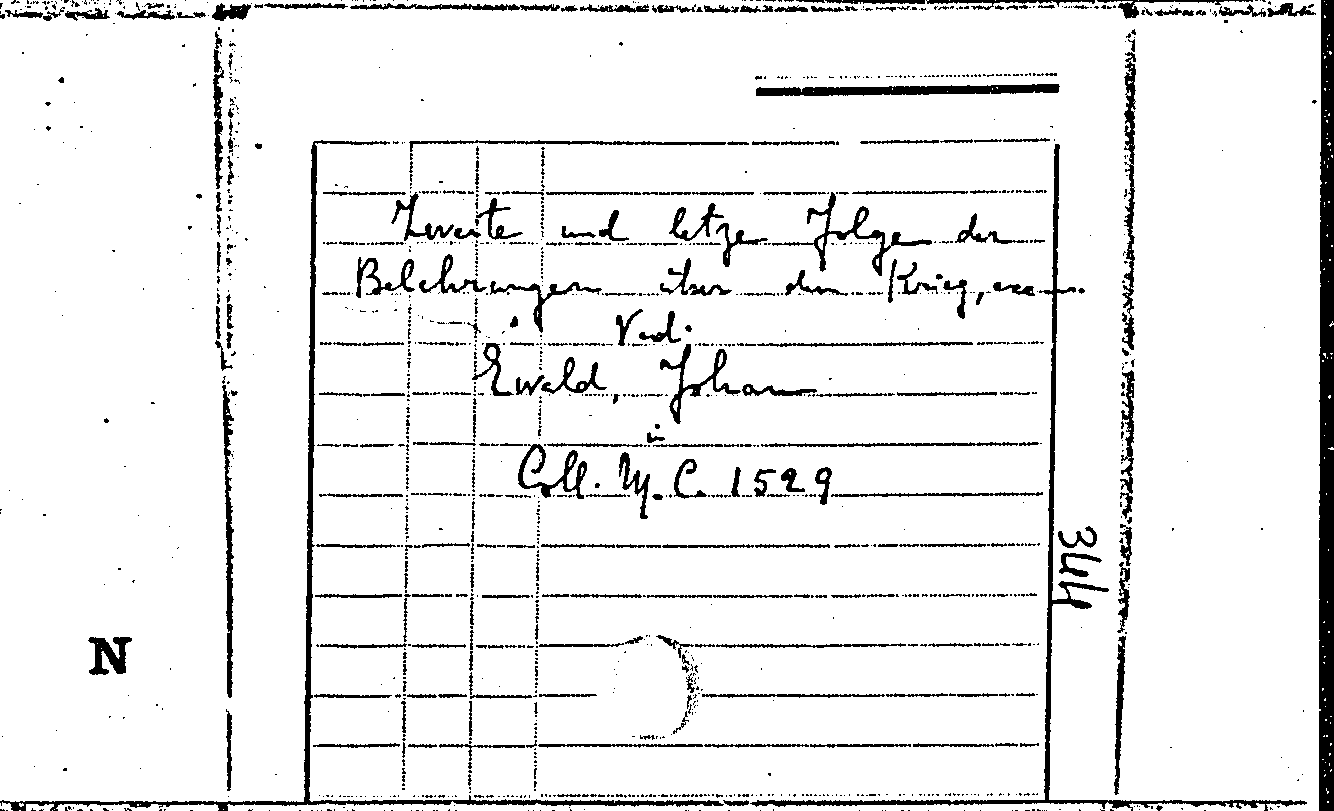 Zweite und letze Folge der
Belehrungen über den Krieg,
Ved.
Ewald, Johan
in
Coll. M. C. 1529
344
N